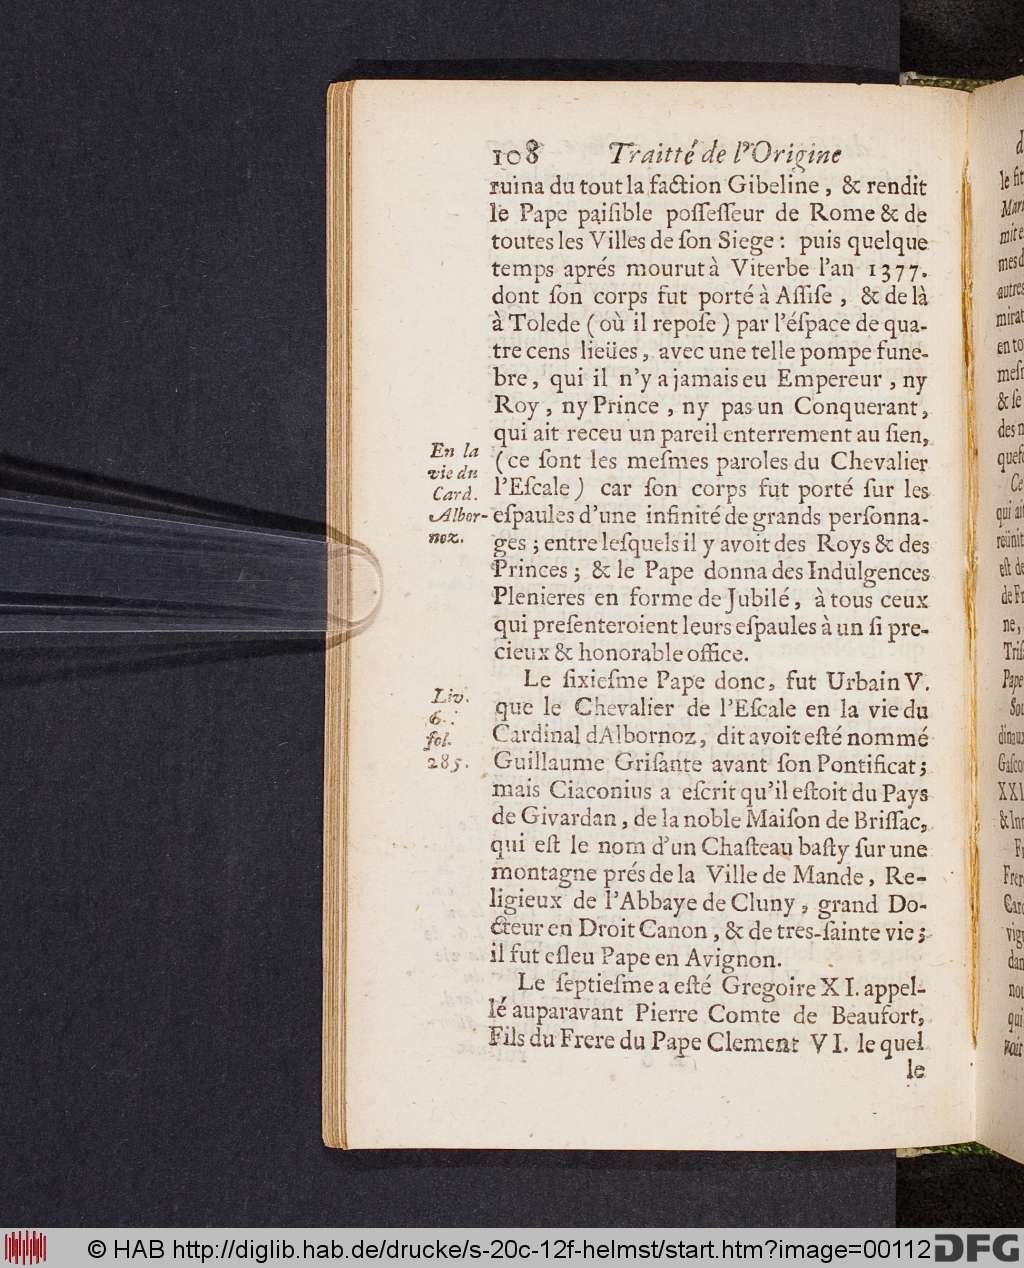 108 Traitté de l'Origine
ruina du tout la faction Gibeline, & rendit
le Pape paiſible poſſeſſeur de Rome & de
toutes les Villes de ſon Siege : puis quelque
temps aprés mourut à Viterbe l'an 1377.
dont ſon corps fut porté à Aſſiſe, & de là
à Tolede (où il repoſe) par l'éſpace de qua-
tre cens lieües, avec une telle pompe fune-
bre, qui il n'y a jamais eu Empereur, ny
Roy, ny Prince, ny pas un Conquerant,
qui ait receu un pareil enterrement au ſien,
(ce ſont les meſmes paroles du Chevalier
l'Eſcale) car ſon corps fut porté ſur les
eſpaules d'une infinité de grands perſonna-
ges ; entre leſquels il y avoit des Roys & des
Princes ; & le Pape donna des Indulgences
Plenieres en forme de Jubilé, à tous ceux
qui preſenteroient leurs eſpaules à un ſi pre-
cieux & honorable office.
En la
vie du
Card.
Albor-
noz.
Le ſixieſme Pape donc, fut Urbain V.
que le Chevalier de l'Eſcale en la vie du
Cardinal dAlbornoz, dit avoit eſté nommé
Guillaume Griſante avant ſon Pontificat ;
mais Ciaconius a eſcrit qu'il eſtoit du Pays
de Givardan, de la noble Maiſon de Briſſac,
qui eſt le nom d'un Chaſteau baſty ſur une
montagne prés de la Ville de Mande, Re-
ligieux de l'Abbaye de Cluny, grand Do-
cteur en Droit Canon, & de tres-ſainte vie ;
il fut eſleu Pape en Avignon.
Liv.
6.
fol.
285.
Le ſeptieſme a eſté Gregoire XI. appel-
lé auparavant Pierre Comte de Beaufort,
Fils du Frere du Pape Clement VI. le quel
le
d
le fit
Mar
mit e
mes d
autres
mirat
en to
meſn
& ſe
des n
queſ
Ce
qui ait
reünit
eſt de
de Fr
ne,
Triſ
Pape
So
dinaux
Gaſco
XXI
& In
Fr
Frere
Card
vig
dan
nou
qui
voit
© HAB http://diglib.hab.de/drucke/s-20c-12f-helmst/start.htm?image=00112
DFG